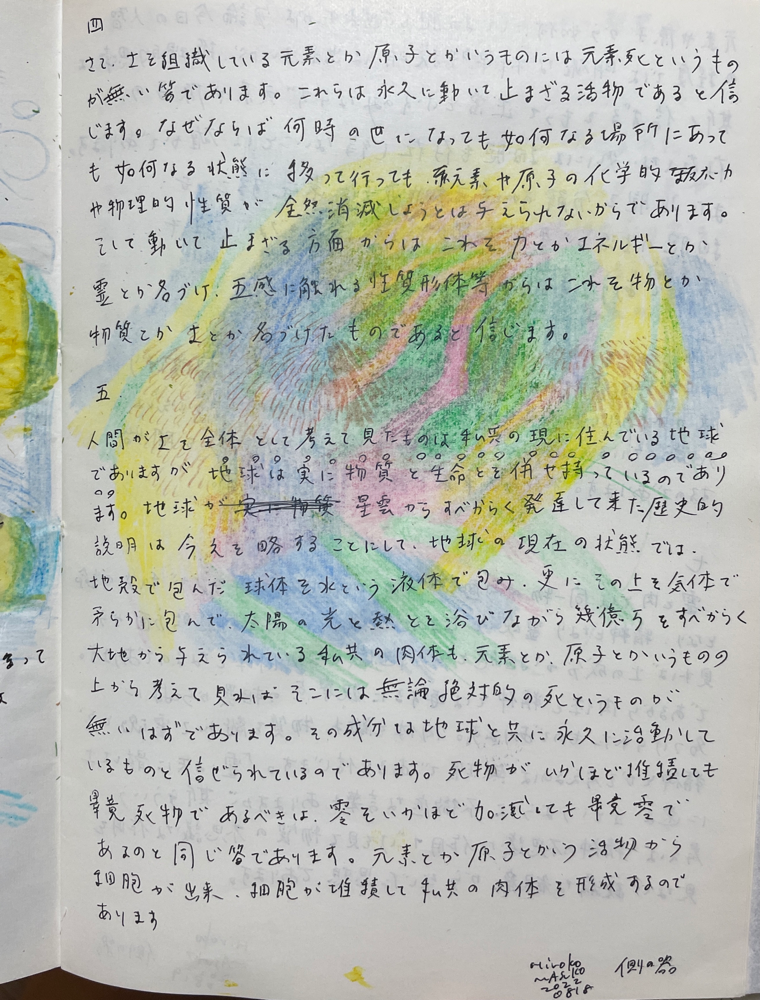 四
さて、土を組織している元素とか原子とかいうものには元素死というもの
が無い筈であります。これらは永久に動いて止まざる活物であると信
じます。なぜならば何時の世になっても如何なる場所にあって
も如何なる状態に移って行っても、元素や原子の化学的
や物理的性質が全然消滅しようとは考えられないからであります。
そして動いて止まざる方面からはこれを力とかエネルギーとか
霊とか名づけ、五感に触れる性質形体等からはこれを物とか
物質とか土とか名づけたものであると信じます。
五
人間が土を全体として考えて見たものは私共の現に住んでいる地球
でありますが地球は実に物質と生命とを併せ持っているのであり
ます。地球が実に物質 星雲からすべからく発達して来た歴史的
説明は今えを略することにして、地球の現在の状態では、
地殻で包んだ球体を水という液体で包み、更にその上を気体で
柔らかに包んで、太陽の光と熱とを浴びながら幾億万をすべからく
大地から与えられている私共の肉体も、元素とか、原子とかいうものの
上から考えて見ればそこには無論絶対的の死というものが
無いはずであります。その成分は地球と共に永久に活動して
いるものと信ぜられているのであります。死物がいかほど堆積しても
畢竟死物であるべきは、零をいかほど加減しても畢竟零で
あるのと同じ筈であります。元素とか原子とかいう活物から
細胞が出来、細胞が堆積して私共の肉体を形成するので
あります
Hiroko
MASKO
2022
0818
側の器
まって